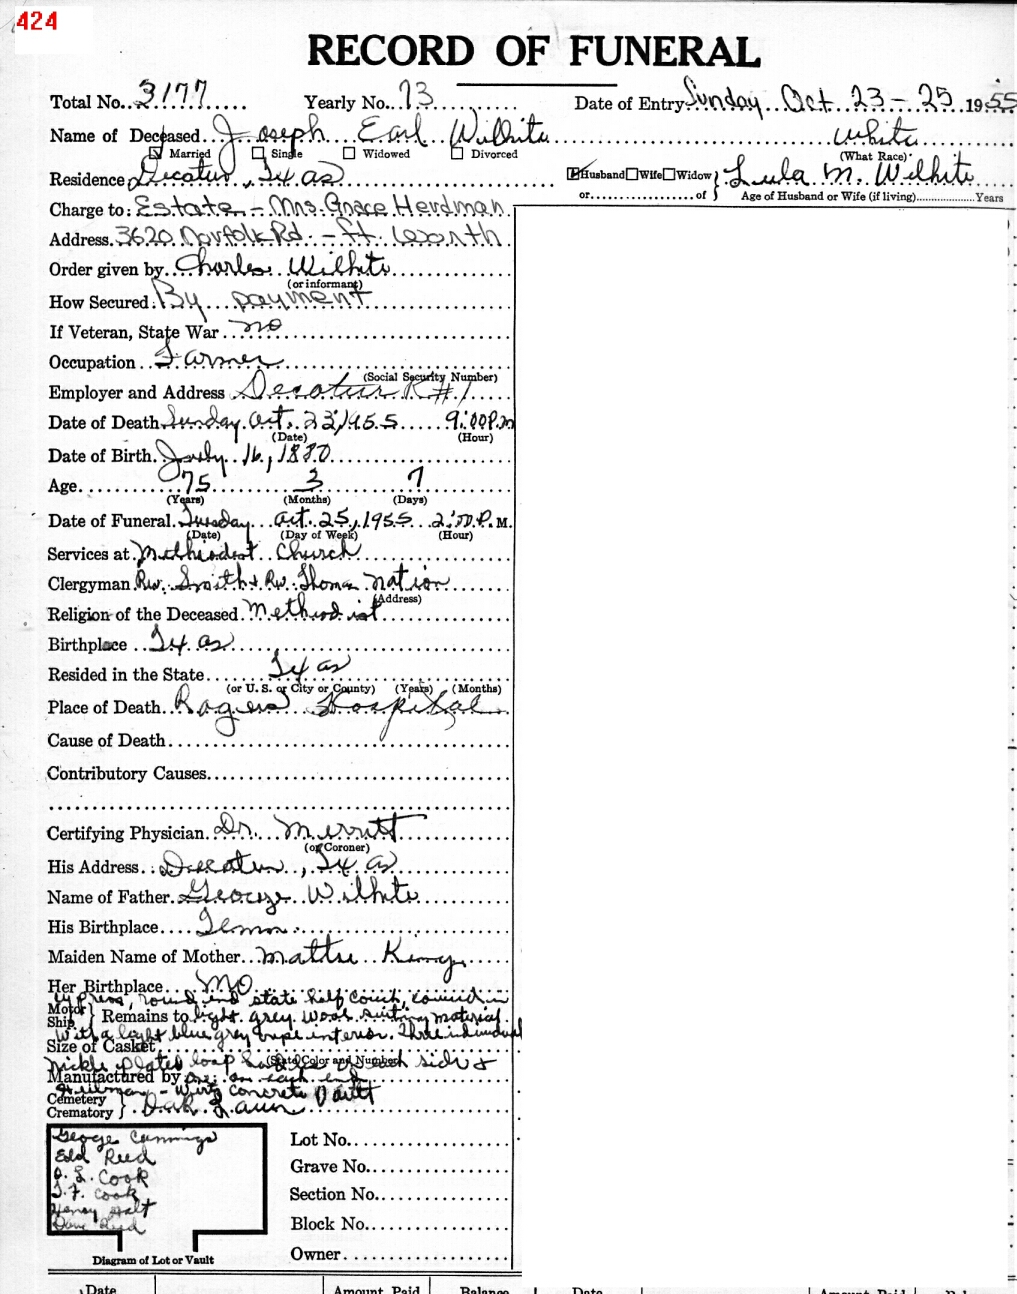 424
RECORD OF FUNERAL
Total No. 3177 Yearly No. 73 Date of Entry Sunday Oct 23-25 1955
Name of Deceased Joseph Earl Wilhite White
Married Single Widowed Divorced (What Race)
Residence Decatur, Texas Husband Wife Widow } Lula M. Wilhite
or of } Age of Husband or Wife (if living) Years
Charge to: Estate - Mrs. Grace Herdman
Address 3620 Norfolk Rd. - Ft. Worth
Order given by Charles Wilhite
(or informant)
How Secured By payment
If Veteran, State War no
Occupation Farmer
(Social Security Number)
Employer and Address Decatur R#1
Date of Death Sunday Oct. 23, 1955 9:00 P.M
(Date) (Hour)
Date of Birth July 16, 1880
Age 75 3 7
(Years) (Months) (Days)
Date of Funeral Tuesday Oct. 25, 1955 2:00 P.M.
(Date) (Day of Week) (Hour)
Services at Methodist Church
Clergyman Rev. Smith + Rev. Thomas Nation
(Address)
Religion of the Deceased Methodist
Birthplace Texas
Resided in the State Texas
(or U. S. or City or County) (Years) (Months)
Place of Death Rogers Hospital
Cause of Death
Contributory Causes
Certifying Physician Dr. Merritt
(or Coroner)
His Address Decatur, Texas
Name of Father George Wilhite
His Birthplace Tenn.
Maiden Name of Mother Mattie King
Her Birthplace MO
Cypress, round end state half couch, covered in
Motor Ship } Remains to light grey wool suiting material
With a light blue grey crepe interior. Three individual
Size of Casket
(State Color and Number)
nickle plated loop handles on each side &
Manufactured by one on each end
- Wirtz concrete Vault
Cemetery Crematory } Oak Lawn
George Cummings
Edd Reed
Cook
Cook
Henry
Dave Reed
Lot No.
Grave No.
Section No.
Block No.
Owner
Diagram of Lot or Vault
Date Amount Paid Balance Date Amount Paid Balance